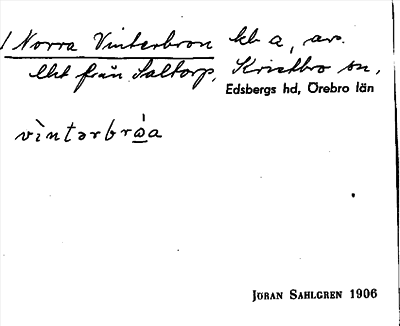 / Norra Vinterbron kb a, avs.
lht från Saltorp, Kvistbro sn,
Edsbergs hd, Örebro län
vìntərbrɷ̀a
JÖRAN SAHLGREN 1906